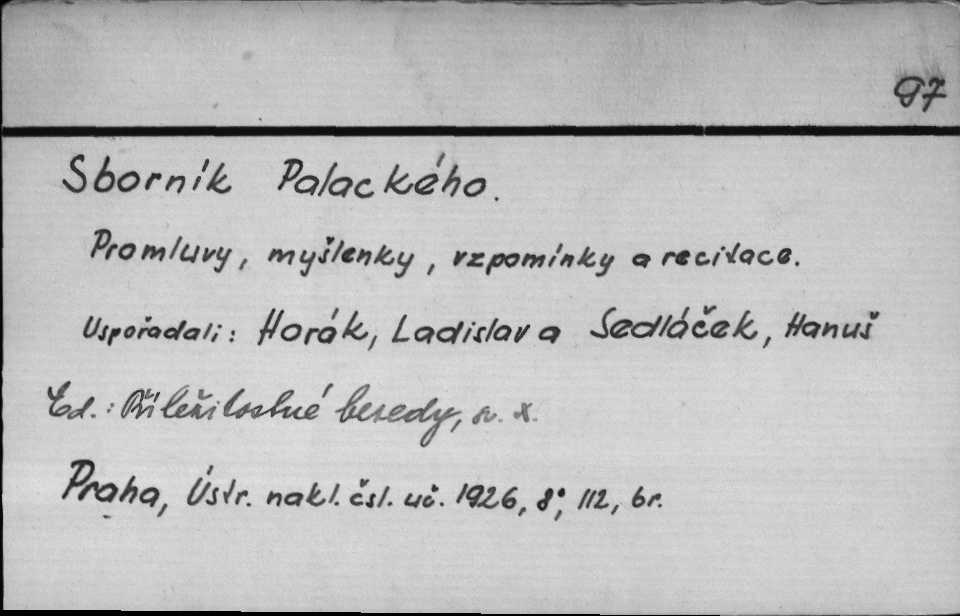 97
Sborník Palackého.
Promluvy, myšlenky, vzpomínky a recitace.
Uspořadali: Horák, Ladislav a Sedláček, Hanuš
Ed.: Příležitostné besedy, sv. X.
Praha, Ústr. nakl. čsl. uč. 1926, 8°, 112, br.